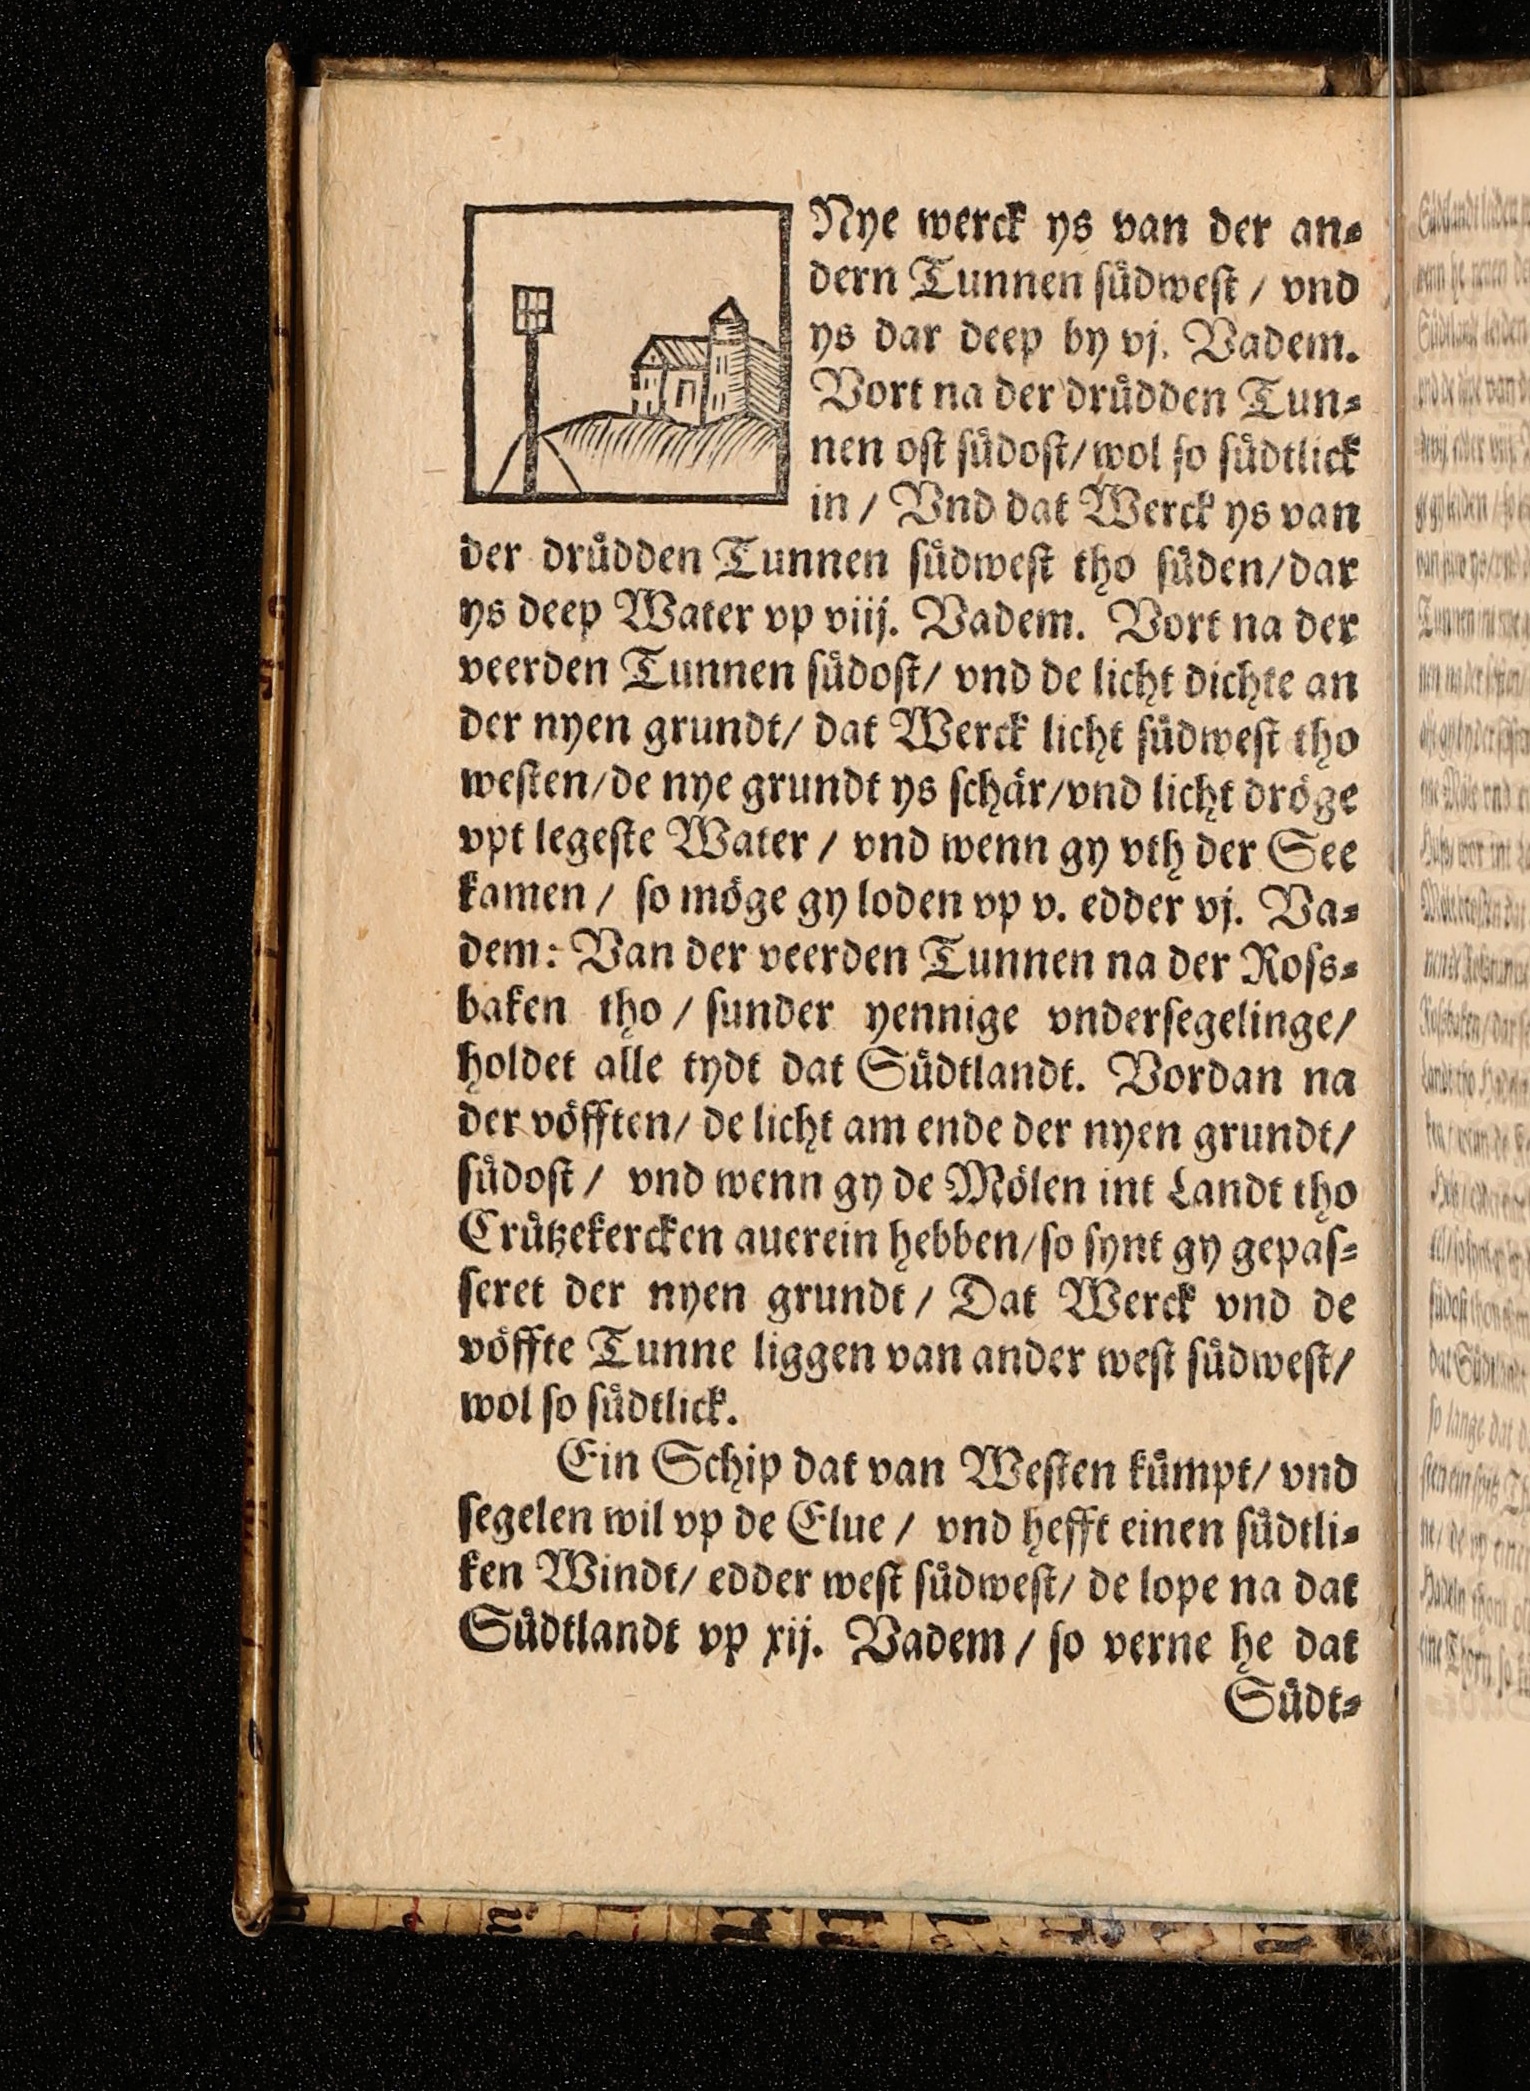 Nye werck ys van der an⸗
dern Tunnen ſuͤdweſt / vnd
ys dar deep by vj. Vadem.
Vort na der druͤdden Tun⸗
nen oſt ſuͤdoſt/ wol ſo ſuͤdtlick
in / Vnd dat Werck ys van
der druͤdden Tunnen ſuͤdweſt tho ſuͤden/ dar
ys deep Water vp viij. Vadem. Vort na der
veerden Tunnen ſuͤdoſt/ vnd de licht dichte an
der nyen grundt/ dat Werck licht ſuͤdweſt tho
weſten/ de nye grundt ys ſchaͤr/ vnd licht droͤge
vpt legeſte Water / vnd wenn gy vth der See
kamen / ſo moͤge gy loden vp v. edder vj. Va⸗
dem: Van der veerden Tunnen na der Roſs⸗
baken tho / ſunder yennige vnderſegelinge/
holdet alle tydt dat Suͤdtlandt. Vordan na
der voͤfften/ de licht am ende der nyen grundt/
ſuͤdoſt / vnd wenn gy de Moͤlen int Landt tho
Cruͤtzekercken auerein hebben/ ſo ſynt gy gepaſ⸗
ſeret der nyen grundt / Dat Werck vnd de
voͤffte Tunne liggen van ander weſt ſuͤdweſt/
wol ſo ſuͤdtlick.
Ein Schip dat van Weſten kuͤmpt/ vnd
ſegelen wil vp de Elue / vnd hefft einen ſuͤdtli⸗
ken Windt/ edder weſt ſuͤdweſt/ de lope na dat
Suͤdtlandt vp xij. Vadem / ſo verne he dat
Suͤdt⸗